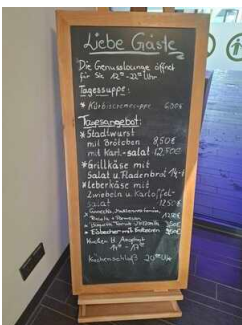 Liebe Gäste
Die Genusslounge öffnet
für Sie 12°° -22°° Uhr
Tagessuppe:
* Kürbiscremesuppe 6,90€
Tagesangebot:
* Stadtwurst
mit Brötchen 8,50€
mit Kart.-salat 12,50€
* Grillkäse mit
Salat u. Fladenbrot 14,-€
* Leberkäse mit
Zwiebeln u. Kartoffel-
salat 12,50€
Tomate-
mit Erdbeeren
Kuchen lt. Angebot
Küchenschluß 20°° Uhr